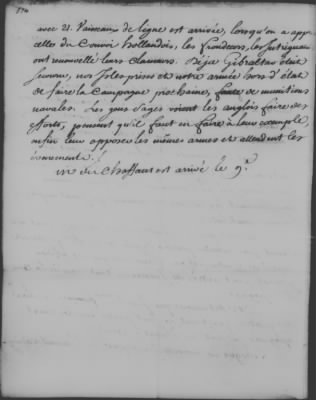 avec 21. Vaisseaux de ligne est arrivée, lorsqu'on a app
celles du Convoi hollandois, les frondeurs, les Intriguans
ont renouvellé leurs clameurs. Déja Gibraltar étoit
secouru, nos isles prises et notre armée hors d'état
de faire la Campagne prochaine, faute de munitions
navales. Les gens sages voient les anglois faire des
efforts, pensent qu'il faut en faire à leur exemple,
enfin leur opposer les mêmes armes et attendent les
événements.
M. du Chaffaut est arrivé le 9.